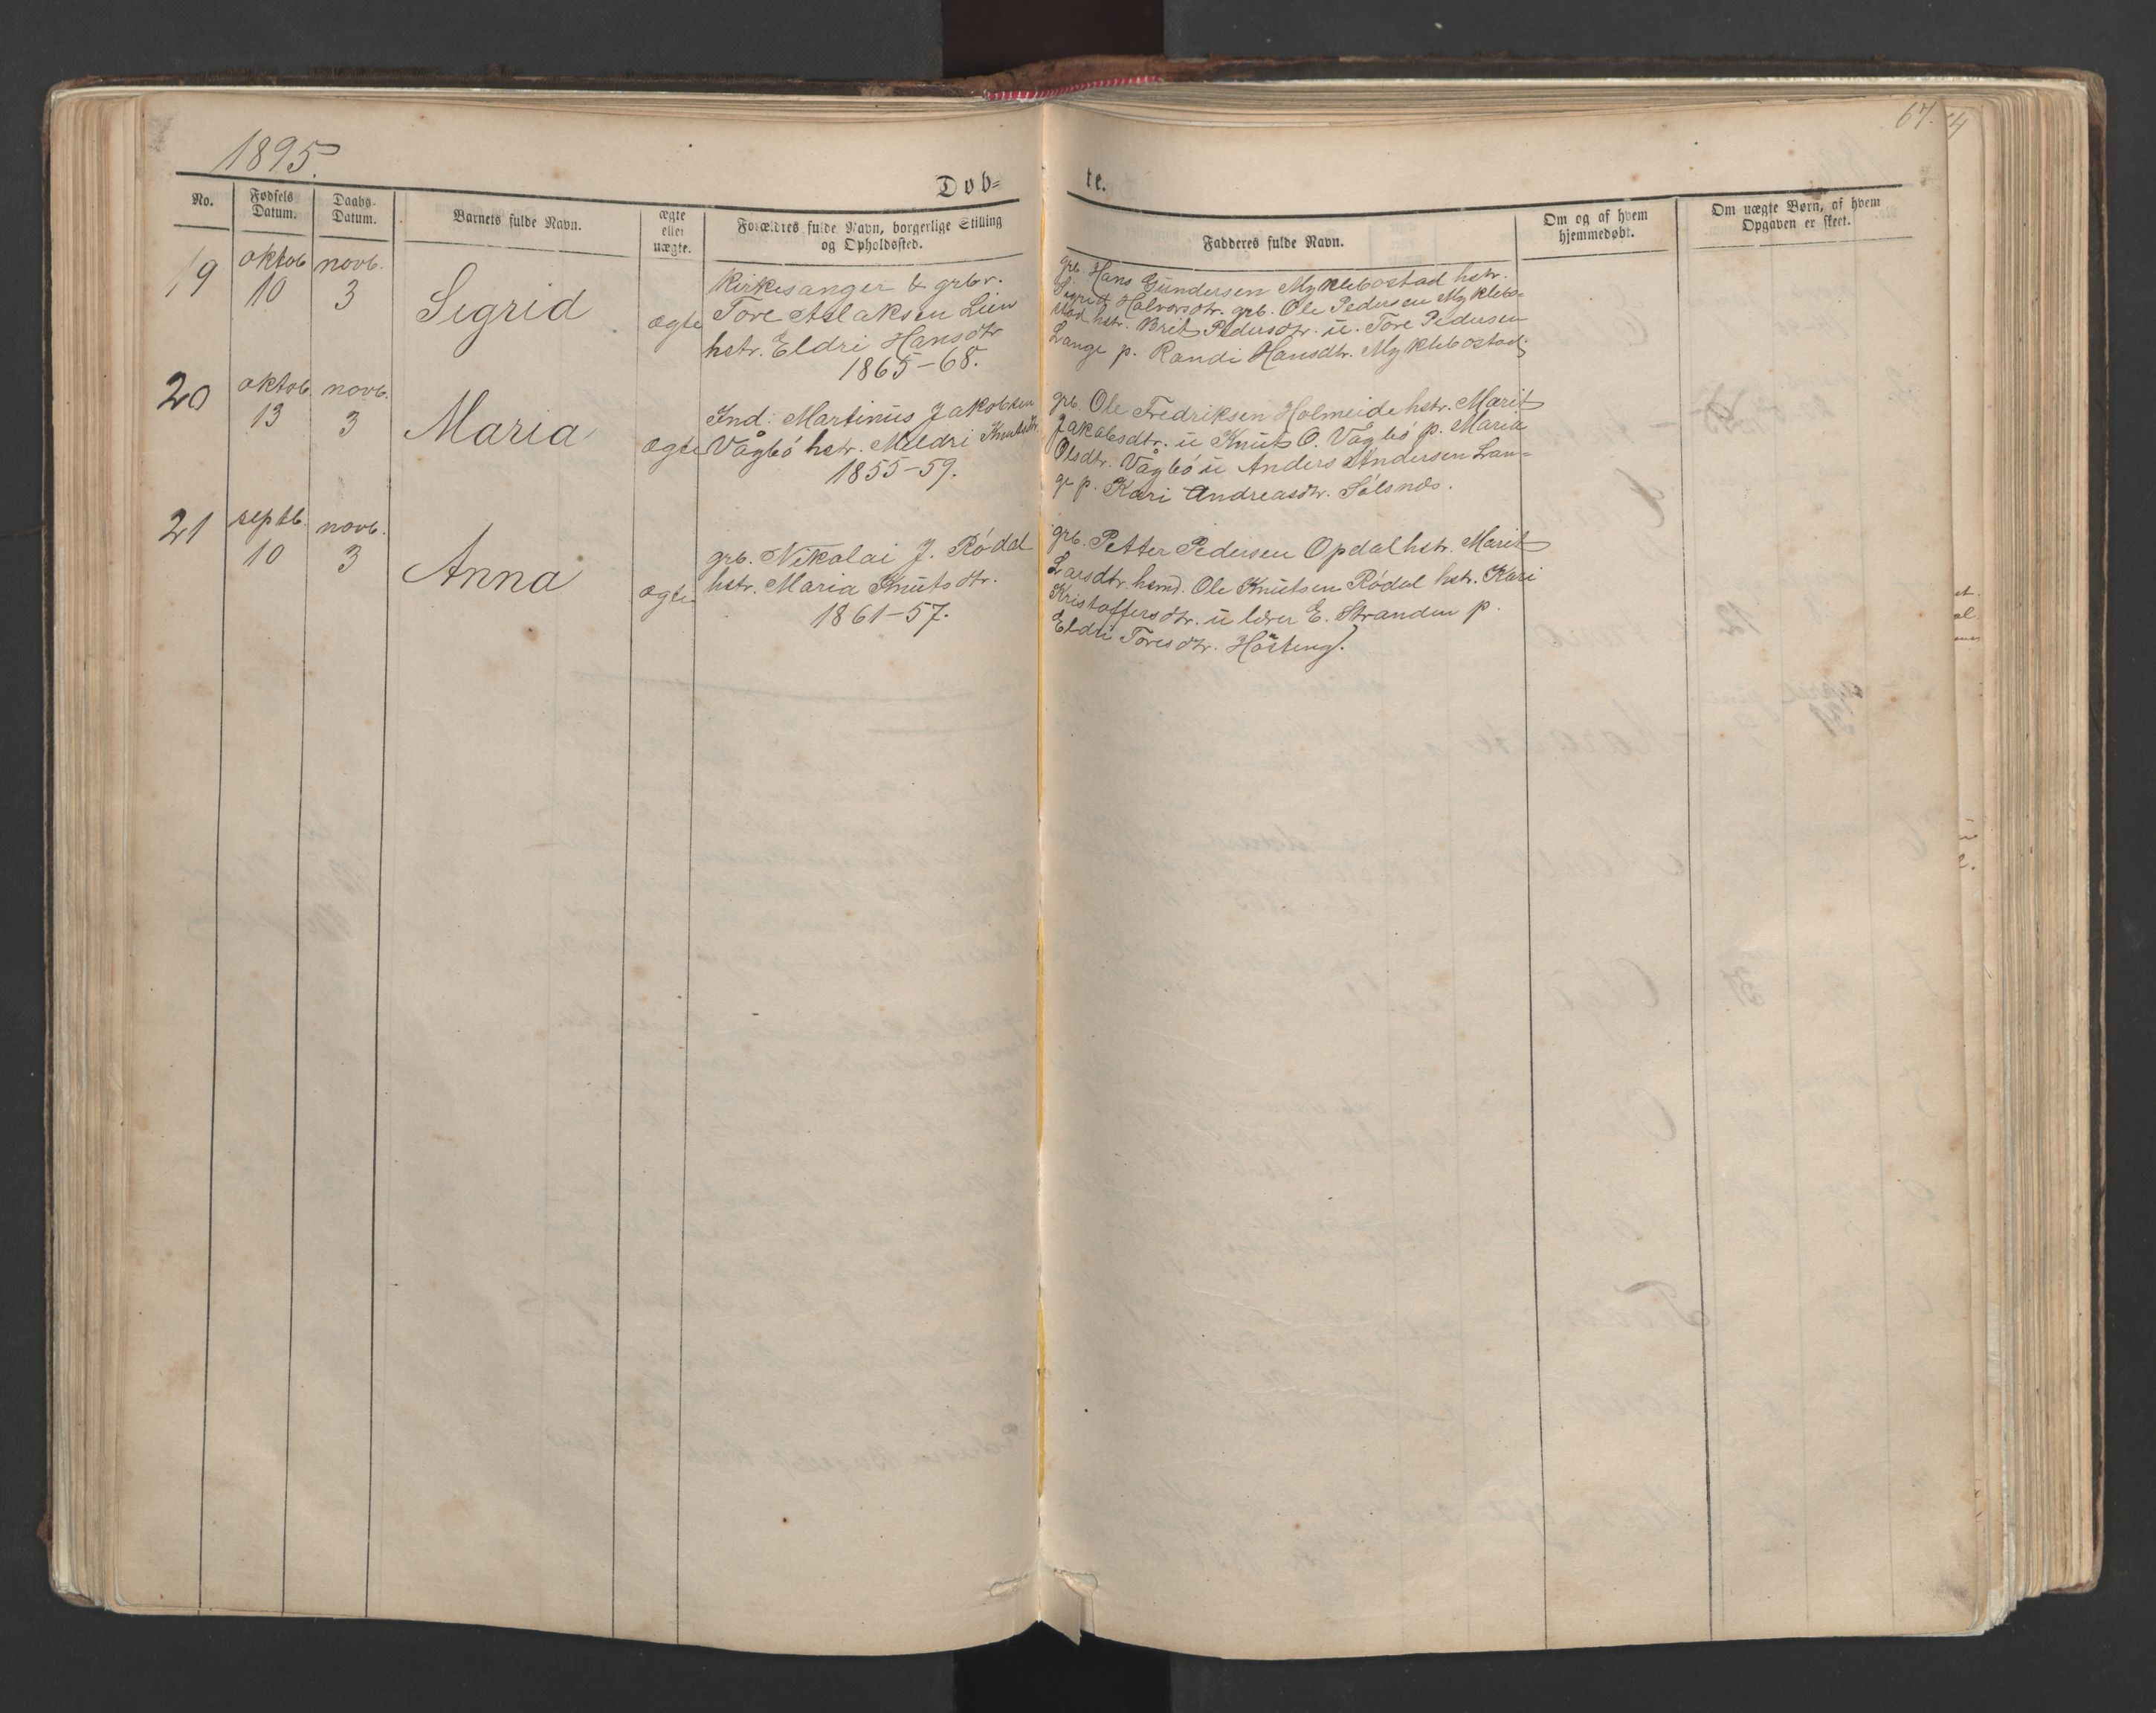 1895.
Døb-
te.
67.
No.
Fødsels
Datum.
Daabs-
Datum.
Barnets fulde Navn.
ægte
eller
uægte.
Forældres fulde Navn, borgerlige Stilling
og Opholdssted.
Fadderes fulde Navn.
Om og af hvem
hjemmedøbt.
Om uægte Børn, af hvem
Opgaven er skeet.
19
oktob
10
novb.
3
Sigrid
ægte
Kirkesanger & grbr.
Tore Aslaksen Lien
hstr. Eldri Hansdtr
1865-68.
grb. Hans Gundersen Myklebostad hstr.
Sigrid Halvorsdtr. grb. Ole Pedersen Myklebo-
stad hstr. Brit Pedersdtr. u. Tore Pedersen
Lange p. Randi Hansdtr. Myklebostad.
20
oktob.
13
novb.
3
Maria
ægte
Ind. Martinus Jakobsen
Vågbö hstr. Meldri Knutsdtr.
1855-59.
grb. Ole Fredriksen Holmeide hstr. Marit
Jakobsdtr. u Knut O. Vågbö p. Maria
Olsdtr. Vågbö u Anders Andersen Lan-
ge p. Kari Andreasdtr. Sølsnes.
21
septb.
10
novb.
3
Anna
ægte
grb. Nikolai J. Rödal
hstr. Maria Knutsdtr.
1861-57.
grb. Petter Pedersen Opdal hstr. Marit
Larsdtr. hsmd. Ole Knutsen Rödal hstr. Kari
Kristoffersdtr. u lærer E. Stranden p.
Eldri Toresdtr. Håsteng.